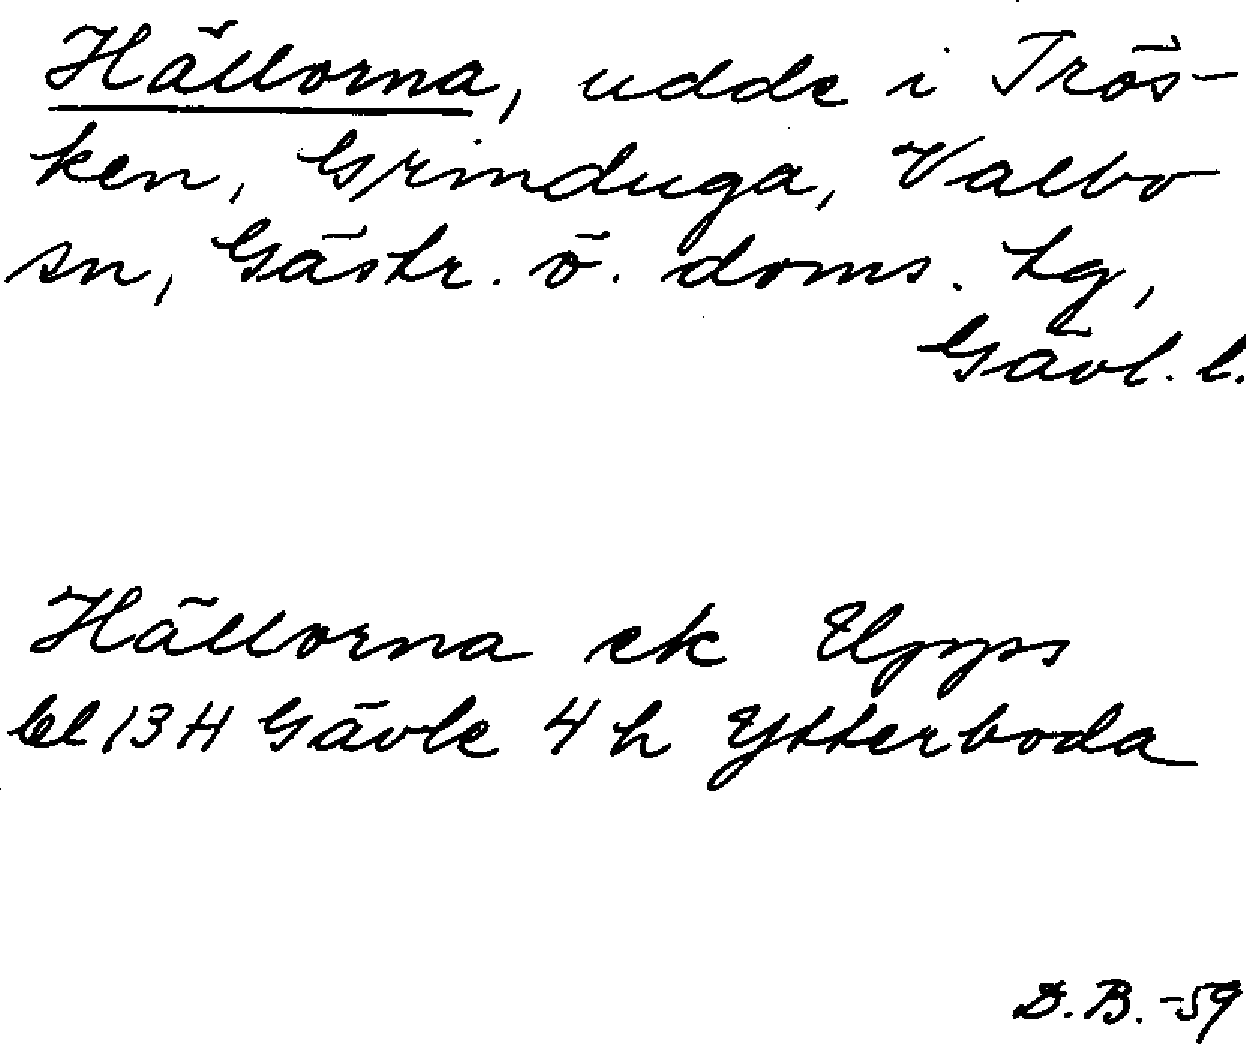 Hällorna, udde i Trös-
ken, Grinduga, Valbo
sn, Gästr. ö. doms. tg,
Gävl. l.
Hällorna ek Upps
bl 13 H Gävle 4 h Ytterboda
D. B. -59